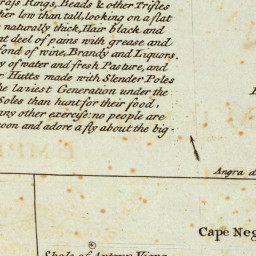 Rings, Beads & other Trifles
her low than tall, looking on a flat
naturally thick, Hair black and
at deel of pains with grease and
fond of wine, Brandy and Liquors.
ty of water and fresh Pasture, and
r Hutts made with Slender Poles
he laziest Generation under the
Soles than hunt for their food,
any other exercise: no people are
oon and adore a fly about the big-
Angra d
Cape Neg